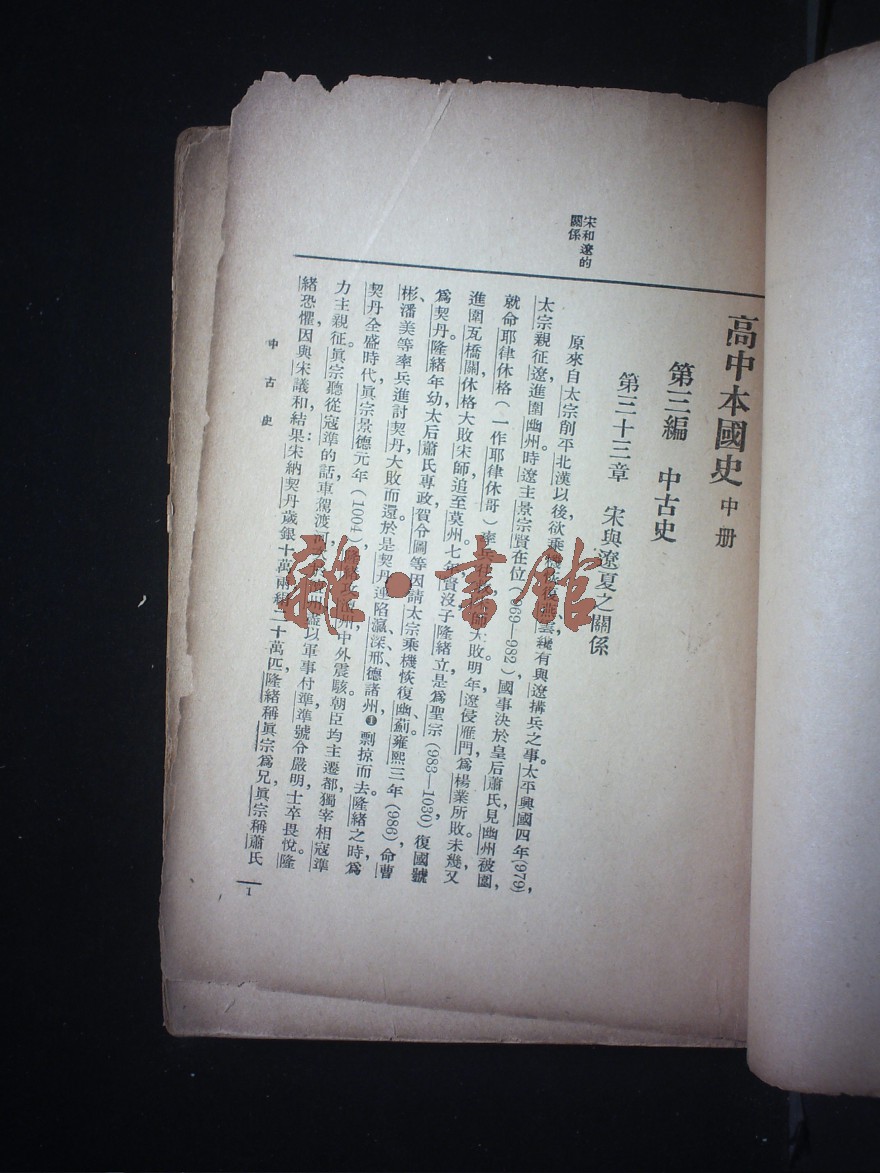 高中本國史 中册
第三編 中古史
第三十三章 宋與遼夏之關係
宋和遼的
關係
原來自太宗削平北漢以後，欲乘機纔有與遼搆兵之事。太平興國四年(979)，
太宗親征遼，進圍幽州。時遼主景宗賢在位(969—982)國事決於皇后蕭氏，見幽州被圍，
就命耶律休格(一作耶律休哥)率兵大敗。明年，遼侵雁門，爲楊業所敗。未幾，又
進圍瓦橋關，休格大敗宋師，追至莫州。七年，賢沒，子隆緒立，是爲聖宗(983—1030)復國號
爲契丹。隆緒年幼，太后蕭氏專政，賀令圖等因請太宗乘機恢復幽、薊。雍熙三年(986)，命曹
彬、潘美等率兵進討契丹，大敗而還。於是契丹連陷瀛、深、邢、德諸州❶剽掠而去。隆緒之時，爲
契丹全盛時代。真宗景德元年(1004)，州，中外震駭，朝臣均主遷都，獨宰相寇準
力主親征。真宗聽從寇準的話，車駕渡河，以軍事付準，準號令嚴明，士卒畏悅。隆
緒恐懼，因與宋議和，結果：宋納契丹歲銀十萬兩，絹二十萬匹，隆緒稱真宗爲兄，真宗稱蕭氏
中古史
1
雜·書館